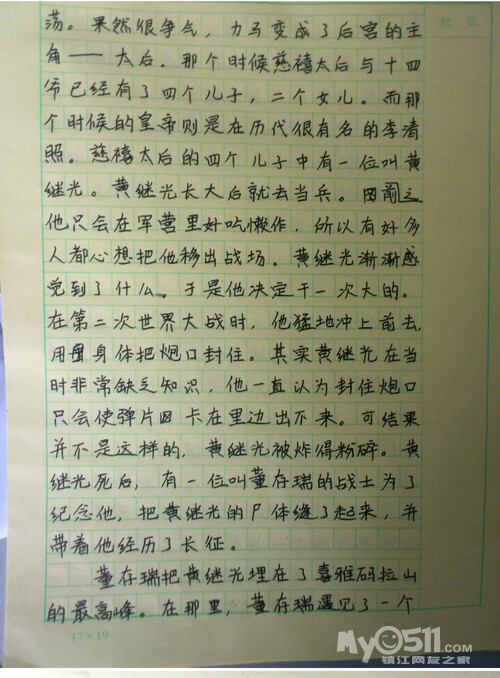 荡。果然很争气，力马变成了后宫的主
角——太后。那个时候慈禧太后与十四
爷已经有了四个儿子，二个女儿。而那
个时候的皇帝则是在历代很有名的李清
照。慈禧太后的四个儿子中有一位叫黄
继光。黄继光长大后就去当兵。因前之
他只会在军营里好吃懒作，所以有好多
人都心想把他移出战场。黄继光渐渐感
觉到了什么。于是他决定干一次大的。
在第二次世界大战时，他猛地冲上前去，
用身体把炮口封住。其实黄继光在当
时非常缺乏知识，他一直以为封住炮口
只会使弹片卡在里边出不来。可结果
并不是这样的，黄继光被炸得粉碎。黄
继光死后，有一位叫董存瑞的战士为了
纪念他，把黄继光的尸体缝了起来，并
带着他经历了长征。
董存瑞把黄继光埋在了喜雅码拉山
的最高峰。在那里，董存瑞遇见了一个
17×19
My0511.com
镇江网友之家